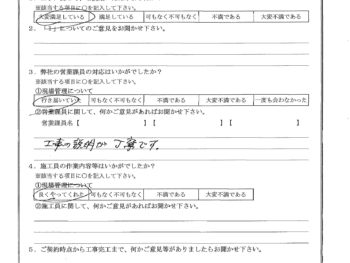 ※該当する項目に○を記入して下さい。
大変満足している 満足している 可もなく不可もなく 不満である 大変不満である
2．「1」についてのご意見をお聞かせ下さい。
3．弊社の営業課員の対応はいかがでしたか？
※該当する項目に○を記入して下さい。
①現場管理について
行き届いていた 可もなく不可もなく 不満である 大変不満である 一度も会わなかった
②営業課員に関して、何かご意見があればお聞かせ下さい。
営業課員名【 】【 】【 】
工事の説明が丁寧です。
4．施工員の作業内容等はいかがでしたか？
※該当する項目に○を記入して下さい。
①現場管理について
良くやってくれた 可もなく不可もなく 不満である 大変不満である
②施工員に関して、何かご意見があればお聞かせ下さい。
5．ご契約時点から工事完工まで、何かご意見等がありましたらお聞かせ下さい。